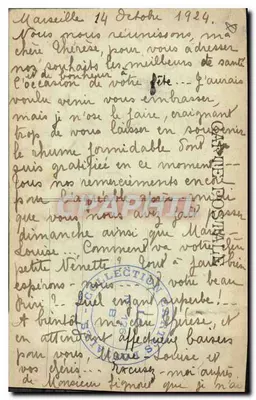 Marseille 14 Octobre 1924.
Nous nous réunissons, ma
chère Thérèse, pour vous adresser
nos souhaits les meilleurs de santé
et de bonheur à
l'occasion de votre fête... J'aurais
voulu venir vous embrasser,
mais je n'ose le faire, craignant
trop de vous laisser en souvenir
le rhume formidable dont
suis gratifiée en ce moment...
tous nos remerciements encore
pour
que vous nous avez fait passer
dimanche ainsi que Marie-
Louise... Comment va votre
petite Nénette? Tout à fait bien
espérons-nous. votre beau
? Quel enfant superbe!...
A bientôt, ma chère Thérèse, et
en attendant affectueux baisers
pour vous, Marie-Louise et
vos Excusez-moi auprès
de Monsieur que je n'ai
CARTE POSTALE
CPAPHIL
COLLECTION